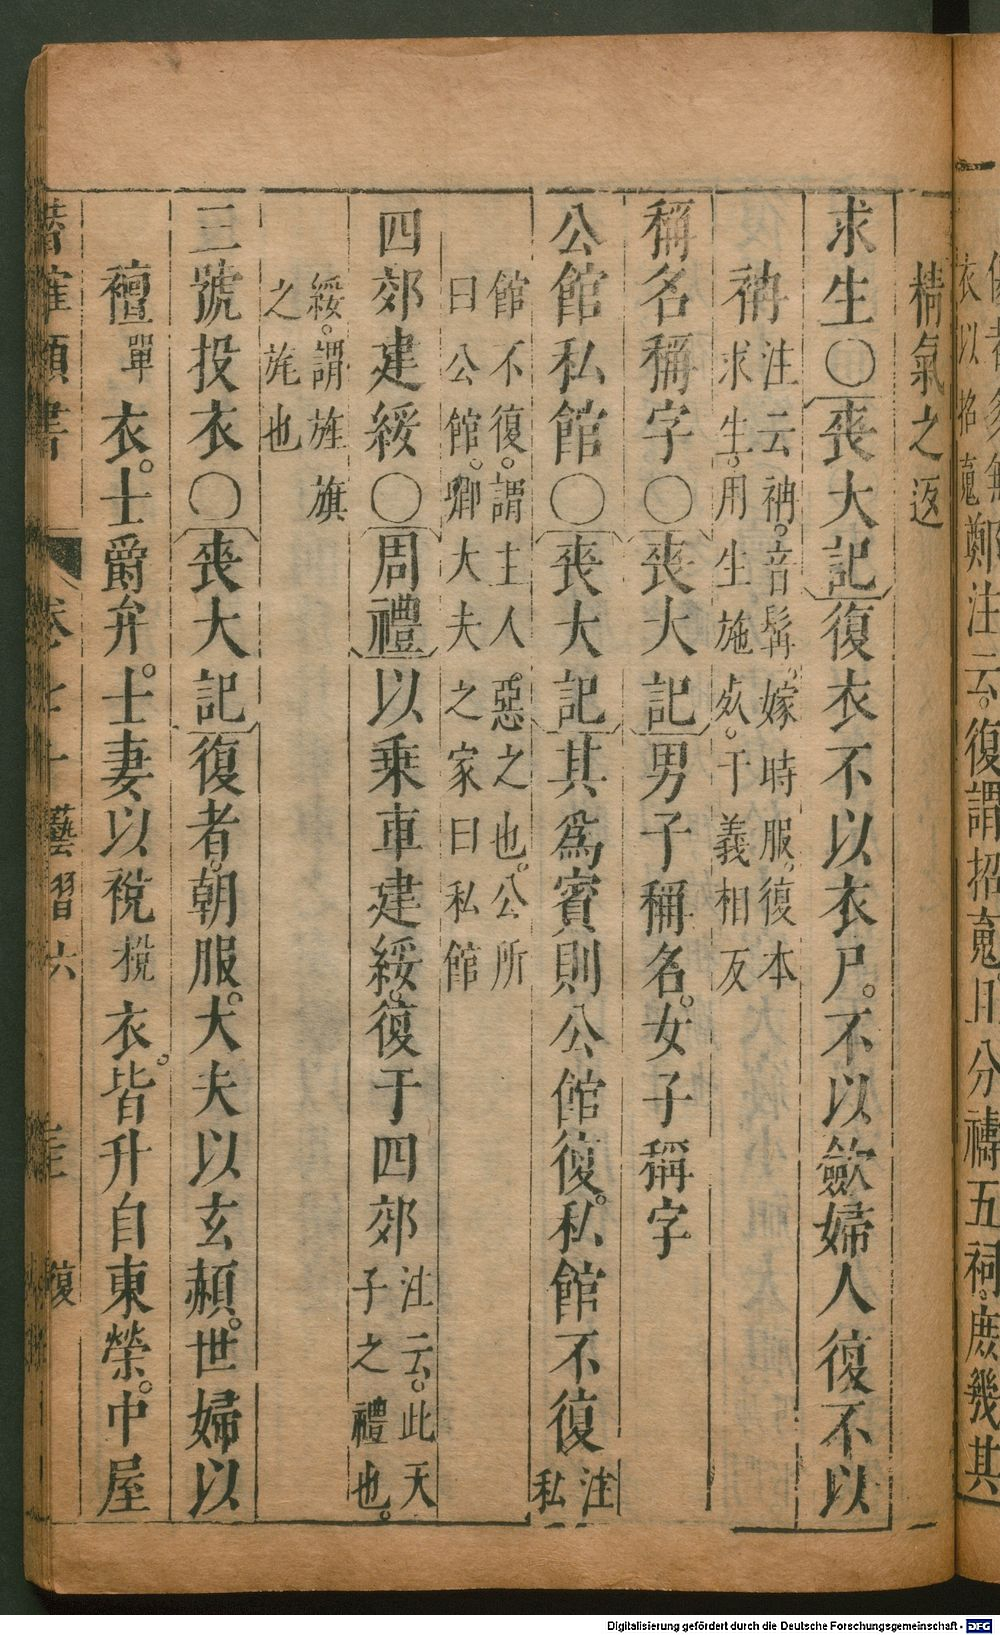 衣以招䰟鄭注云。復謂招䰟且分禱五祠。庶幾其
精氣之返
求生〇喪大記復衣不以衣尸。不以斂婦人復不以
袡注云袡。音髯。嫁時服。復本
求生。用生施死。于義相反
稱名稱字〇喪大記男子稱名。女子稱字
公館私館〇喪大記其爲賓則公館復。私館不復注私
館不復。謂主人惡之也。公所
曰公館。卿大夫之家曰私館
四郊建綏〇周禮以乘車建綏。復于四郊注云。此天子之禮也。
綏。謂旌旗
之旄也
三號投衣〇喪大記復者。朝服。大夫以玄赬。世婦以
襢單衣。士爵弁。士妻以稅衣。皆升自東榮。中屋
卷七十 藝習六 復
Digitalisierung gefördert durch die Deutsche Forschungsgemeinschaft - DFG